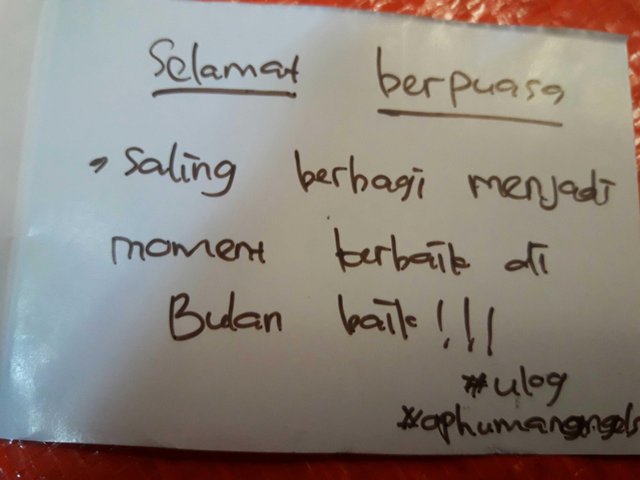 Selamat berpuasa
, saling berbagi menjadi
moment terbaik di
Bulan baik!!!
#ulog